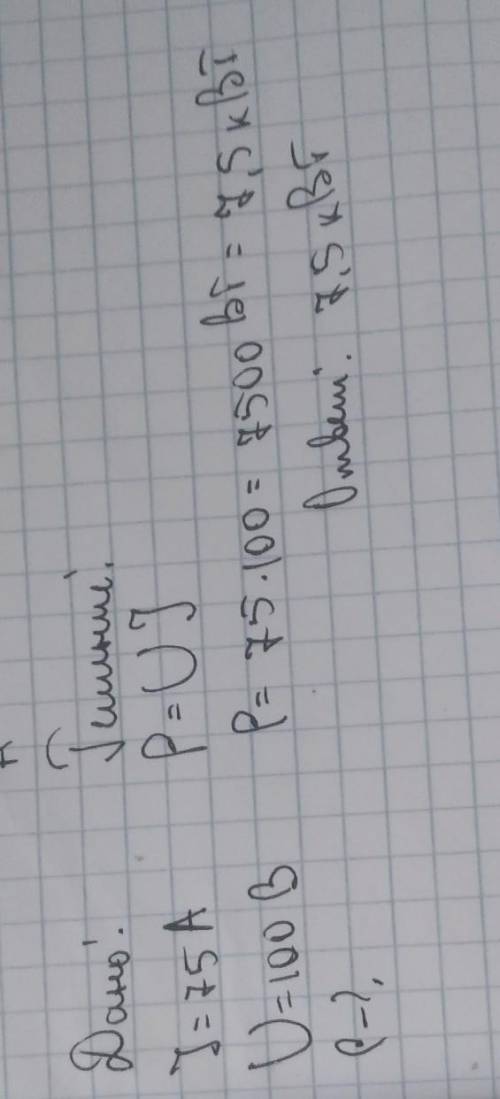 Дано:
J = 75 A
U = 100 В
P - ?
Решение:
P = UJ
P = 75 · 100 = 7500 Вт = 7,5 кВт
Ответ: 7,5 кВт